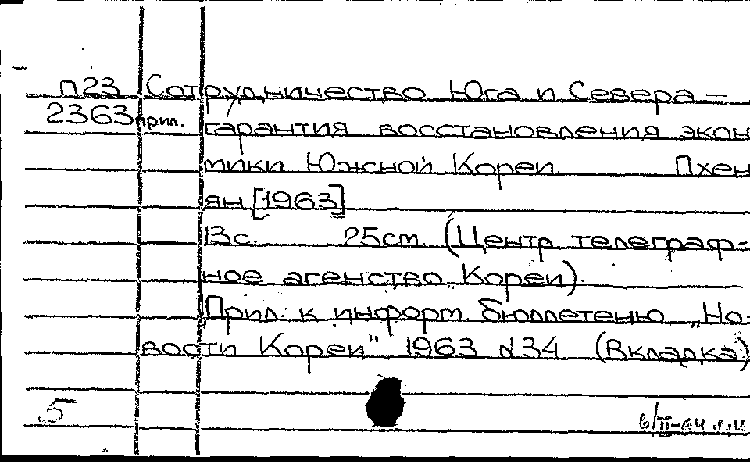 П23 Сотрудничество Юга и Севера –
2363 прил. гарантия восстановления экон
мики Южной Кореи Пхен
ян [1963]
13с. 25см (Центр телеграф-
ное агенство Кореи)
Прил. к информ. бюллетеню „Но-
вости Кореи" 1963 №34 (Вкладка)
5